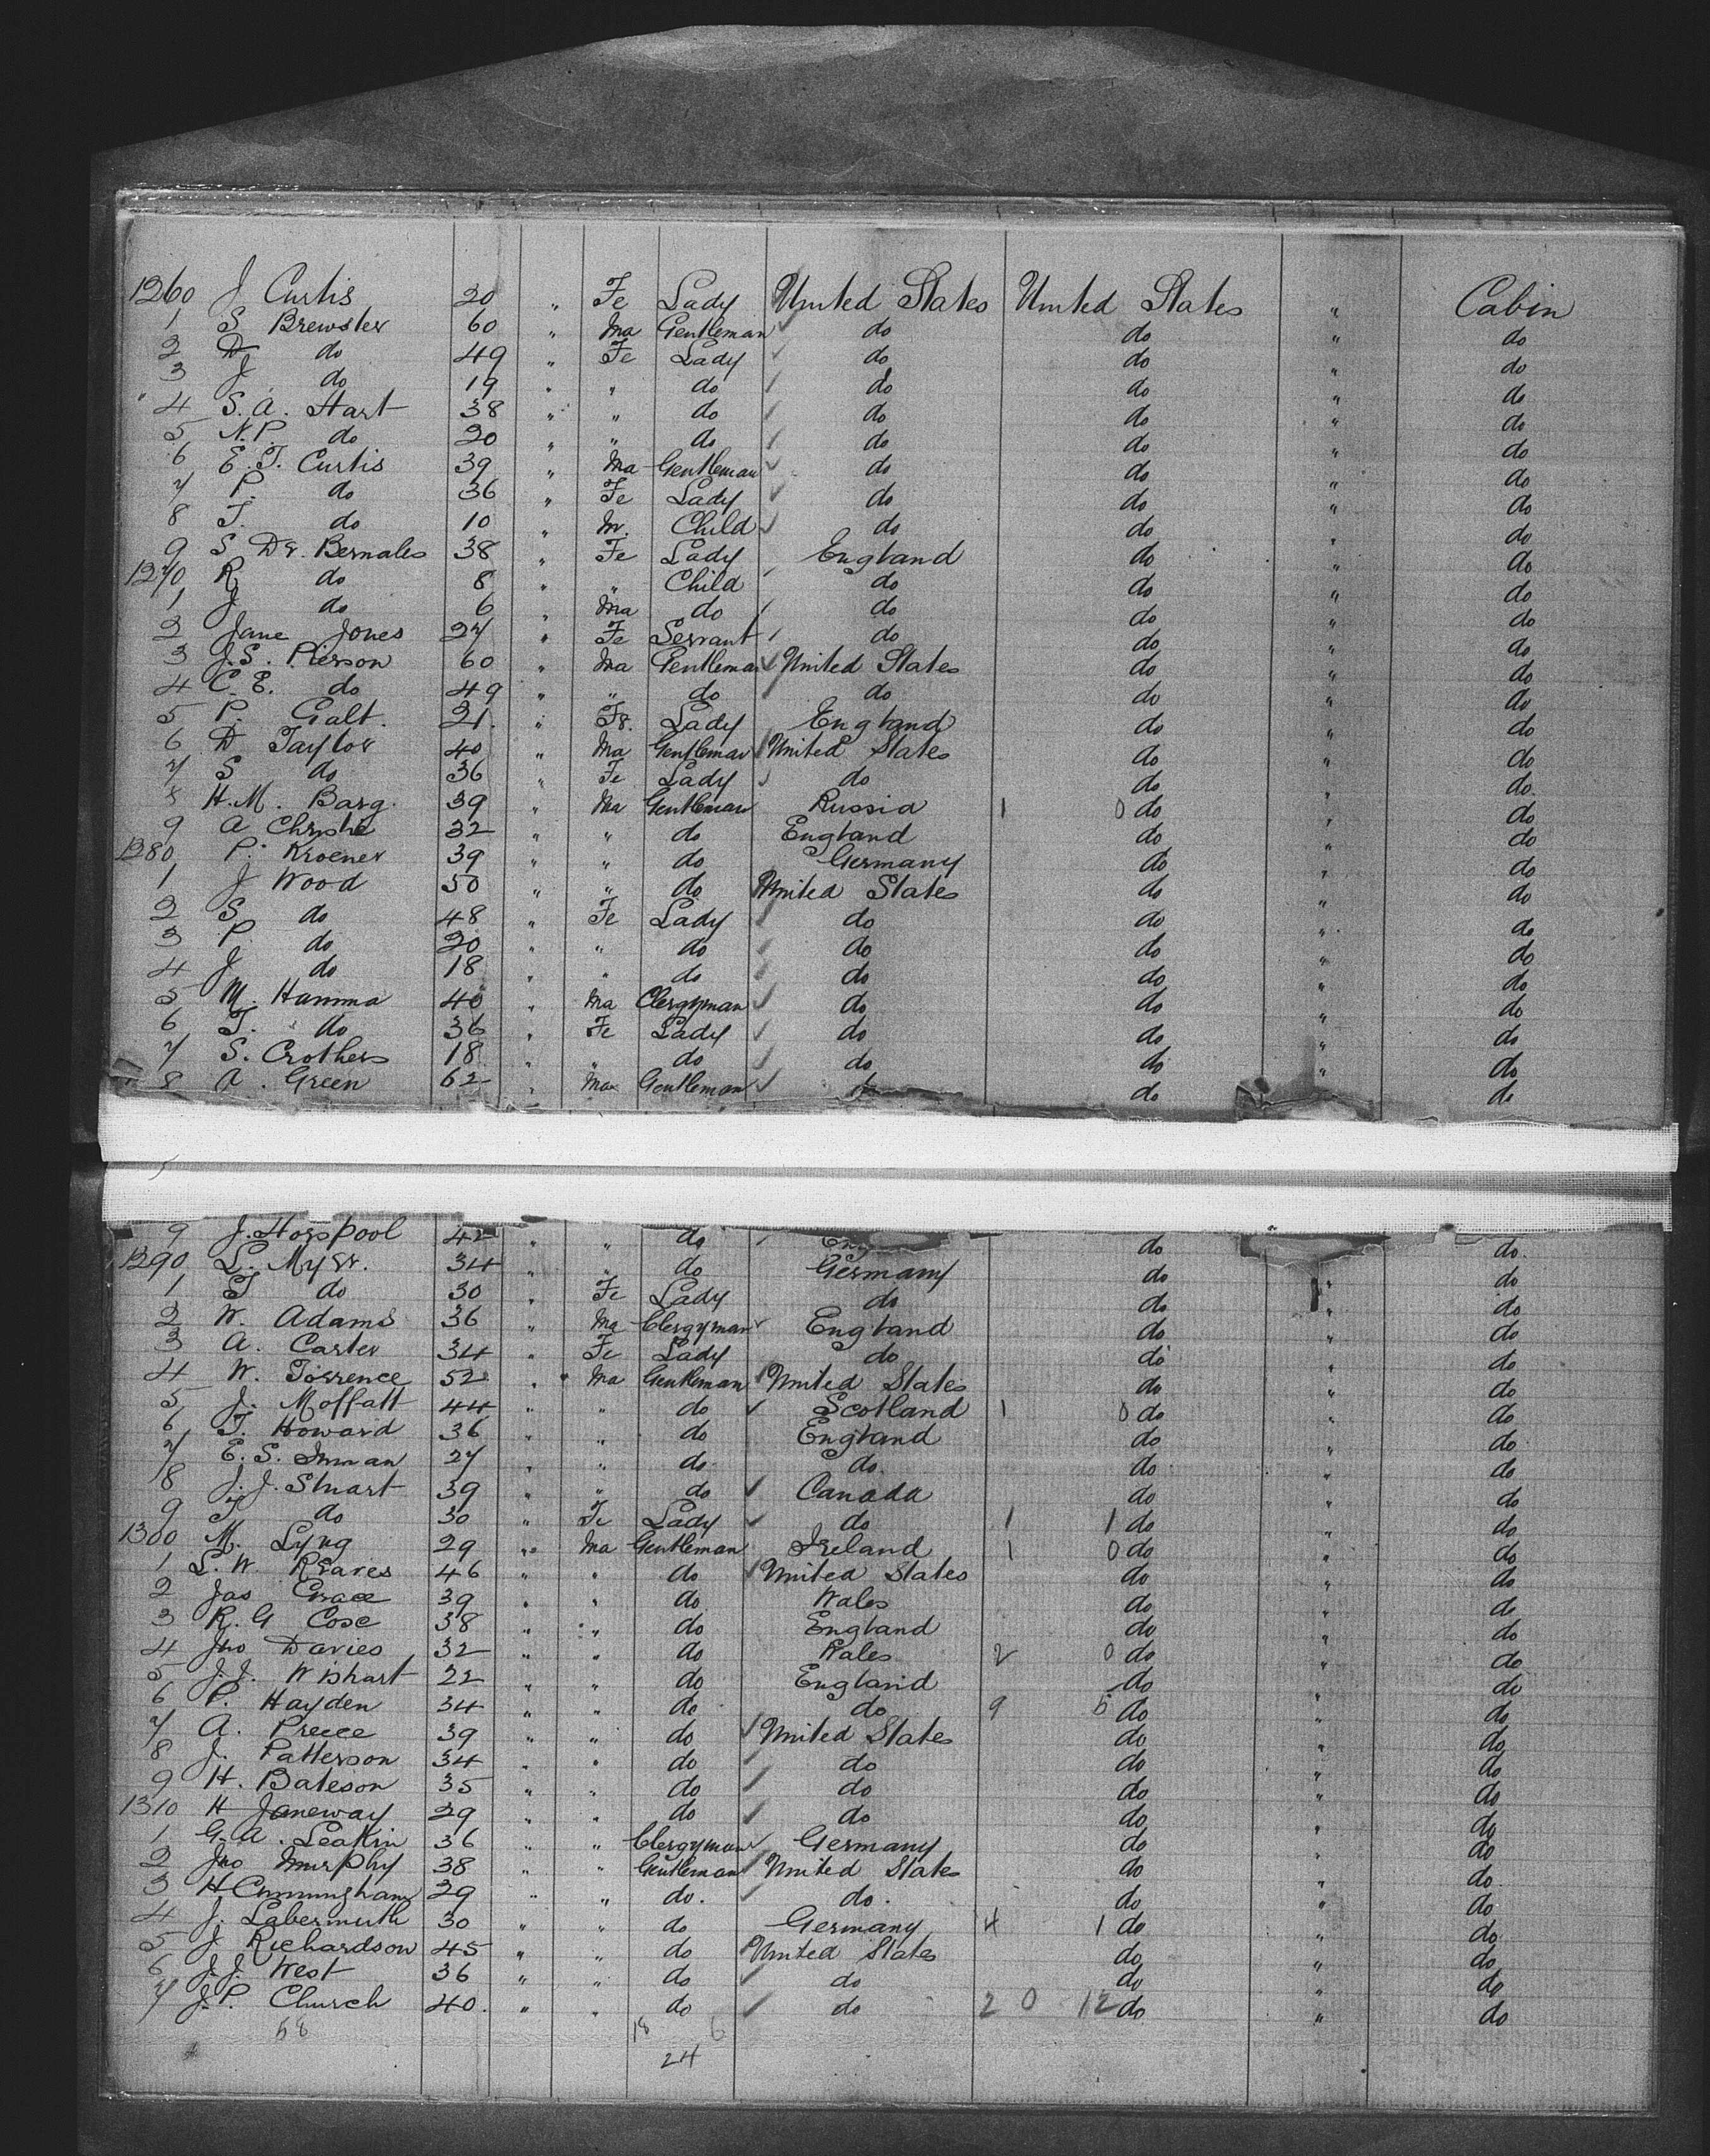 1260 J Curtis 20 " Fe Lady United States United States " Cabin
1 S Brewster 60 " Ma Gentleman do do " do
2 D do 49 " Fe Lady do do " do
3 J do 19 " " do do do " do
4 S. A. Hart 38 " " do do do " do
5 N. P. do 20 " " do do do " do
6 E. T. Curtis 39 " Ma Gentleman do do " do
7 P. do 36 " Fe Lady do do " do
8 T. do 10 " M. Child do do " do
9 S De. Bernales 38 " Fe Lady England do " do
1270 R do 8 " " Child do do " do
1 J do 6 " Ma do do do " do
2 Jane Jones 27 " Fe Servant do do " do
3 J. S. Pierson 60 " Ma Gentleman United States do " do
4 C. E. do 49 " " do do do " do
5 P. Galt. 21. " Fe. Lady England do " do
6 D Taylor 40 " Ma Gentleman United States do " do
7 S do 36 " Fe Lady do do " do
8 H. M. Barg. 39 " Ma Gentleman Russia 1 0 do " do
9 A Christie 32 " " do England do " do
1280 P. Kroener 39 " " do Germany do " do
1 J Wood 50 " " do United States do " do
2 S do 48 " Fe Lady do do " do
3 P. do 20 " " do do do " do
4 J do 18 " " do do do " do
5 M. Hamma 40 " Ma Clergyman do do " do
6 T. do 36 " Fe Lady do do " do
7 S. Crothers 18 " " do do do " do
8 A. Green 62 " Ma Gentleman do do
9 J. Horspool 42 " " do do do
1290 L. Myer. 34 " " do Germany do " do
1 T do 30 " Fe Lady do do " do
2 W. Adams 36 " Ma Clergyman England do " do
3 A. Carter 34 " Fe Lady do do " do
4 W. Torrence 52 " Ma Gentleman United States do " do
5 J. Moffatt 44 " " do Scotland 1 0 do " do
6 T. Howard 36 " " do England do " do
7 E. S. Inman 27 " " do do do " do
8 J. J. Stuart 39 " " do Canada do " do
9 do 30 " Fe Lady do 1 1 do " do
1300 M. Lyng 29 " Ma Gentleman Ireland 1 0 do " do
1 L. W. Reaves 46 " " do United States do " do
2 Jas Grace 39 " " do Wales do " do
3 R. G Cose 38 " " do England do " do
4 Jno Davies 32 " " do Wales 2 0 do " do
5 J. J. Wishart 22 " " do England do " do
6 P. Hayden 34 " " do do 9 5 do " do
7 A. Preece 39 " " do United States do " do
8 J. Patterson 34 " " do do do " do
9 H. Bateson 35 " " do do do " do
1310 H Janeway 29 " " do do do " do
1 G. A. Leakin 36 " " Clergyman Germany do " do
2 Jno Murphy 38 " " Gentleman United States do " do
3 H Cunningham 29 " " do. do. do " do
4 J. Labermuth 30 " " do Germany 4 1 do " do
5 J Richardson 45 " " do United States do " do
6 J. J. West 36 " " do do do " do
7 J. P. Church 40. " " do do 2 0 12 do " do
58 18 6
24